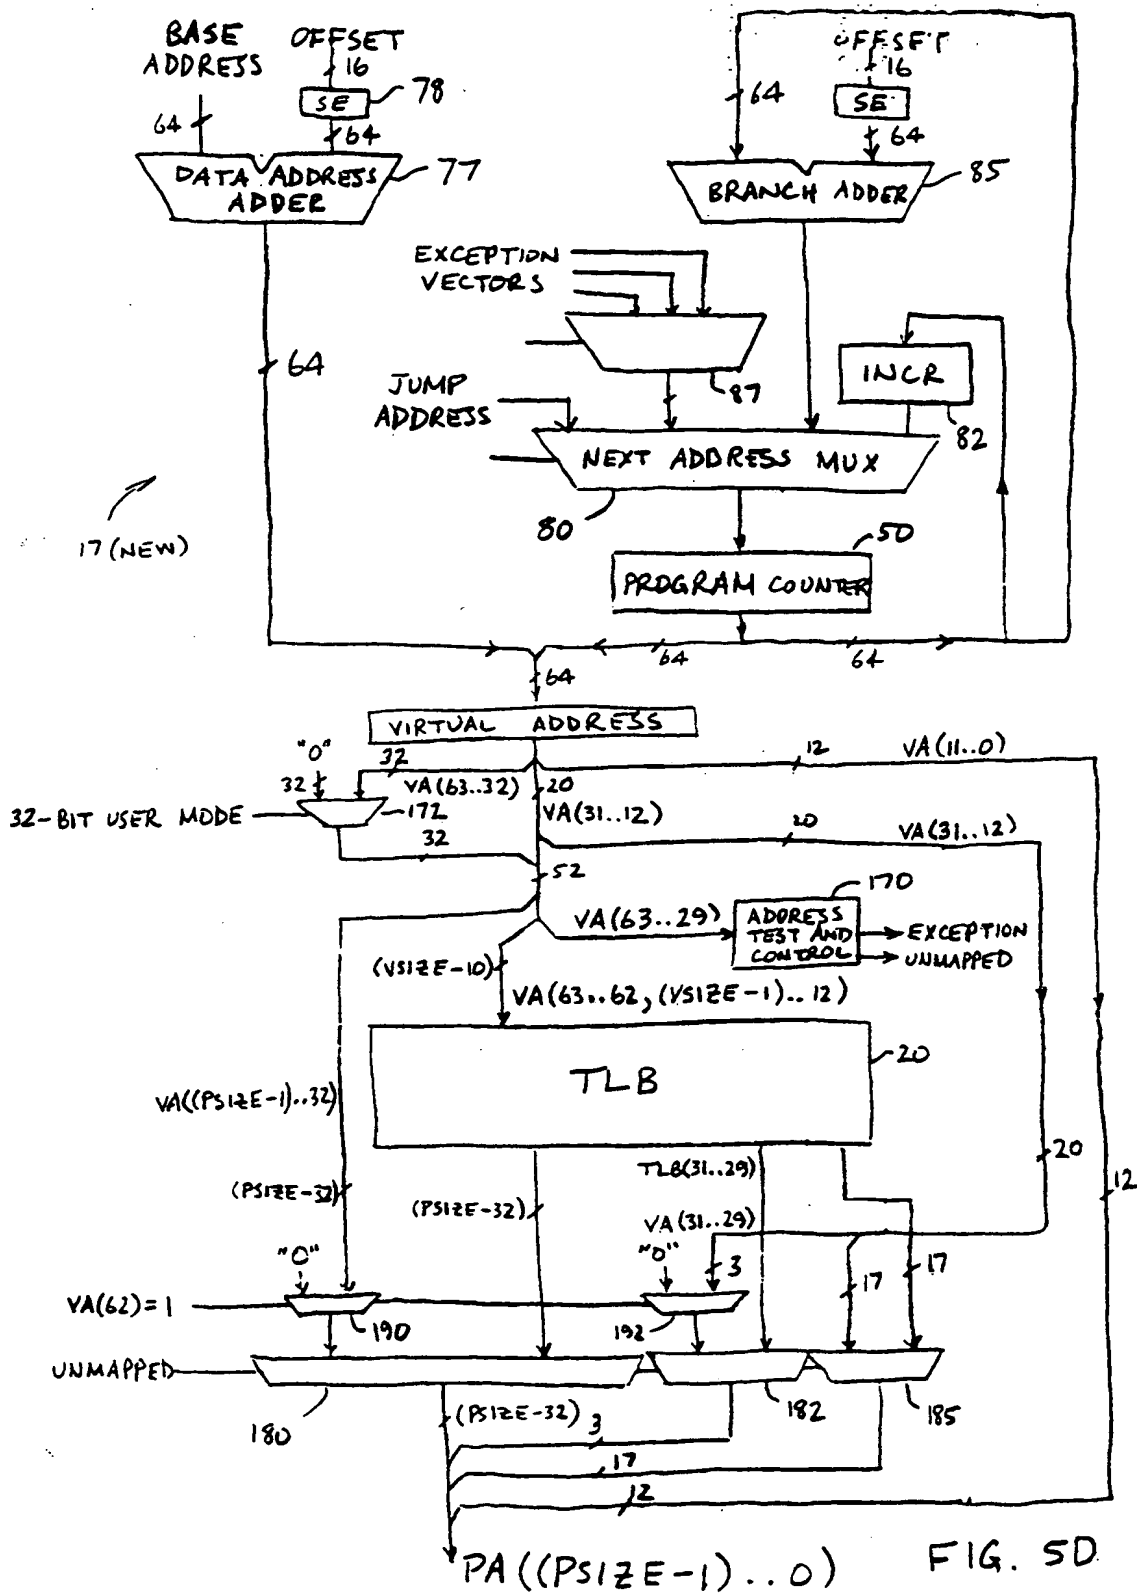 BASE ADDRESS
OFFSET
16
SE
78
64
64
DATA ADDRESS ADDER
77
64
OFFSET
16
SE
64
64
BRANCH ADDER
85
EXCEPTION VECTORS
87
JUMP ADDRESS
INCR
82
NEXT ADDRESS MUX
80
50
PROGRAM COUNTER
17 (NEW)
64
64
64
VIRTUAL ADDRESS
"0"
32
32
VA(63..32)
20
VA(31..12)
12
VA(11..0)
32-BIT USER MODE
172
32
20
VA(31..12)
52
170
VA(63..29)
ADDRESS TEST AND CONTROL
EXCEPTION
UNMAPPED
(VSIZE-10)
VA(63..62, (VSIZE-1)..12)
TLB
20
VA((PSIZE-1)..32)
(PSIZE-32)
(PSIZE-32)
TLB(31..29)
20
12
VA(31..29)
"0"
"0"
3
17
17
VA(62)=1
190
192
UNMAPPED
180
182
185
(PSIZE-32)
3
17
12
PA((PSIZE-1)..0)
FIG. 5D